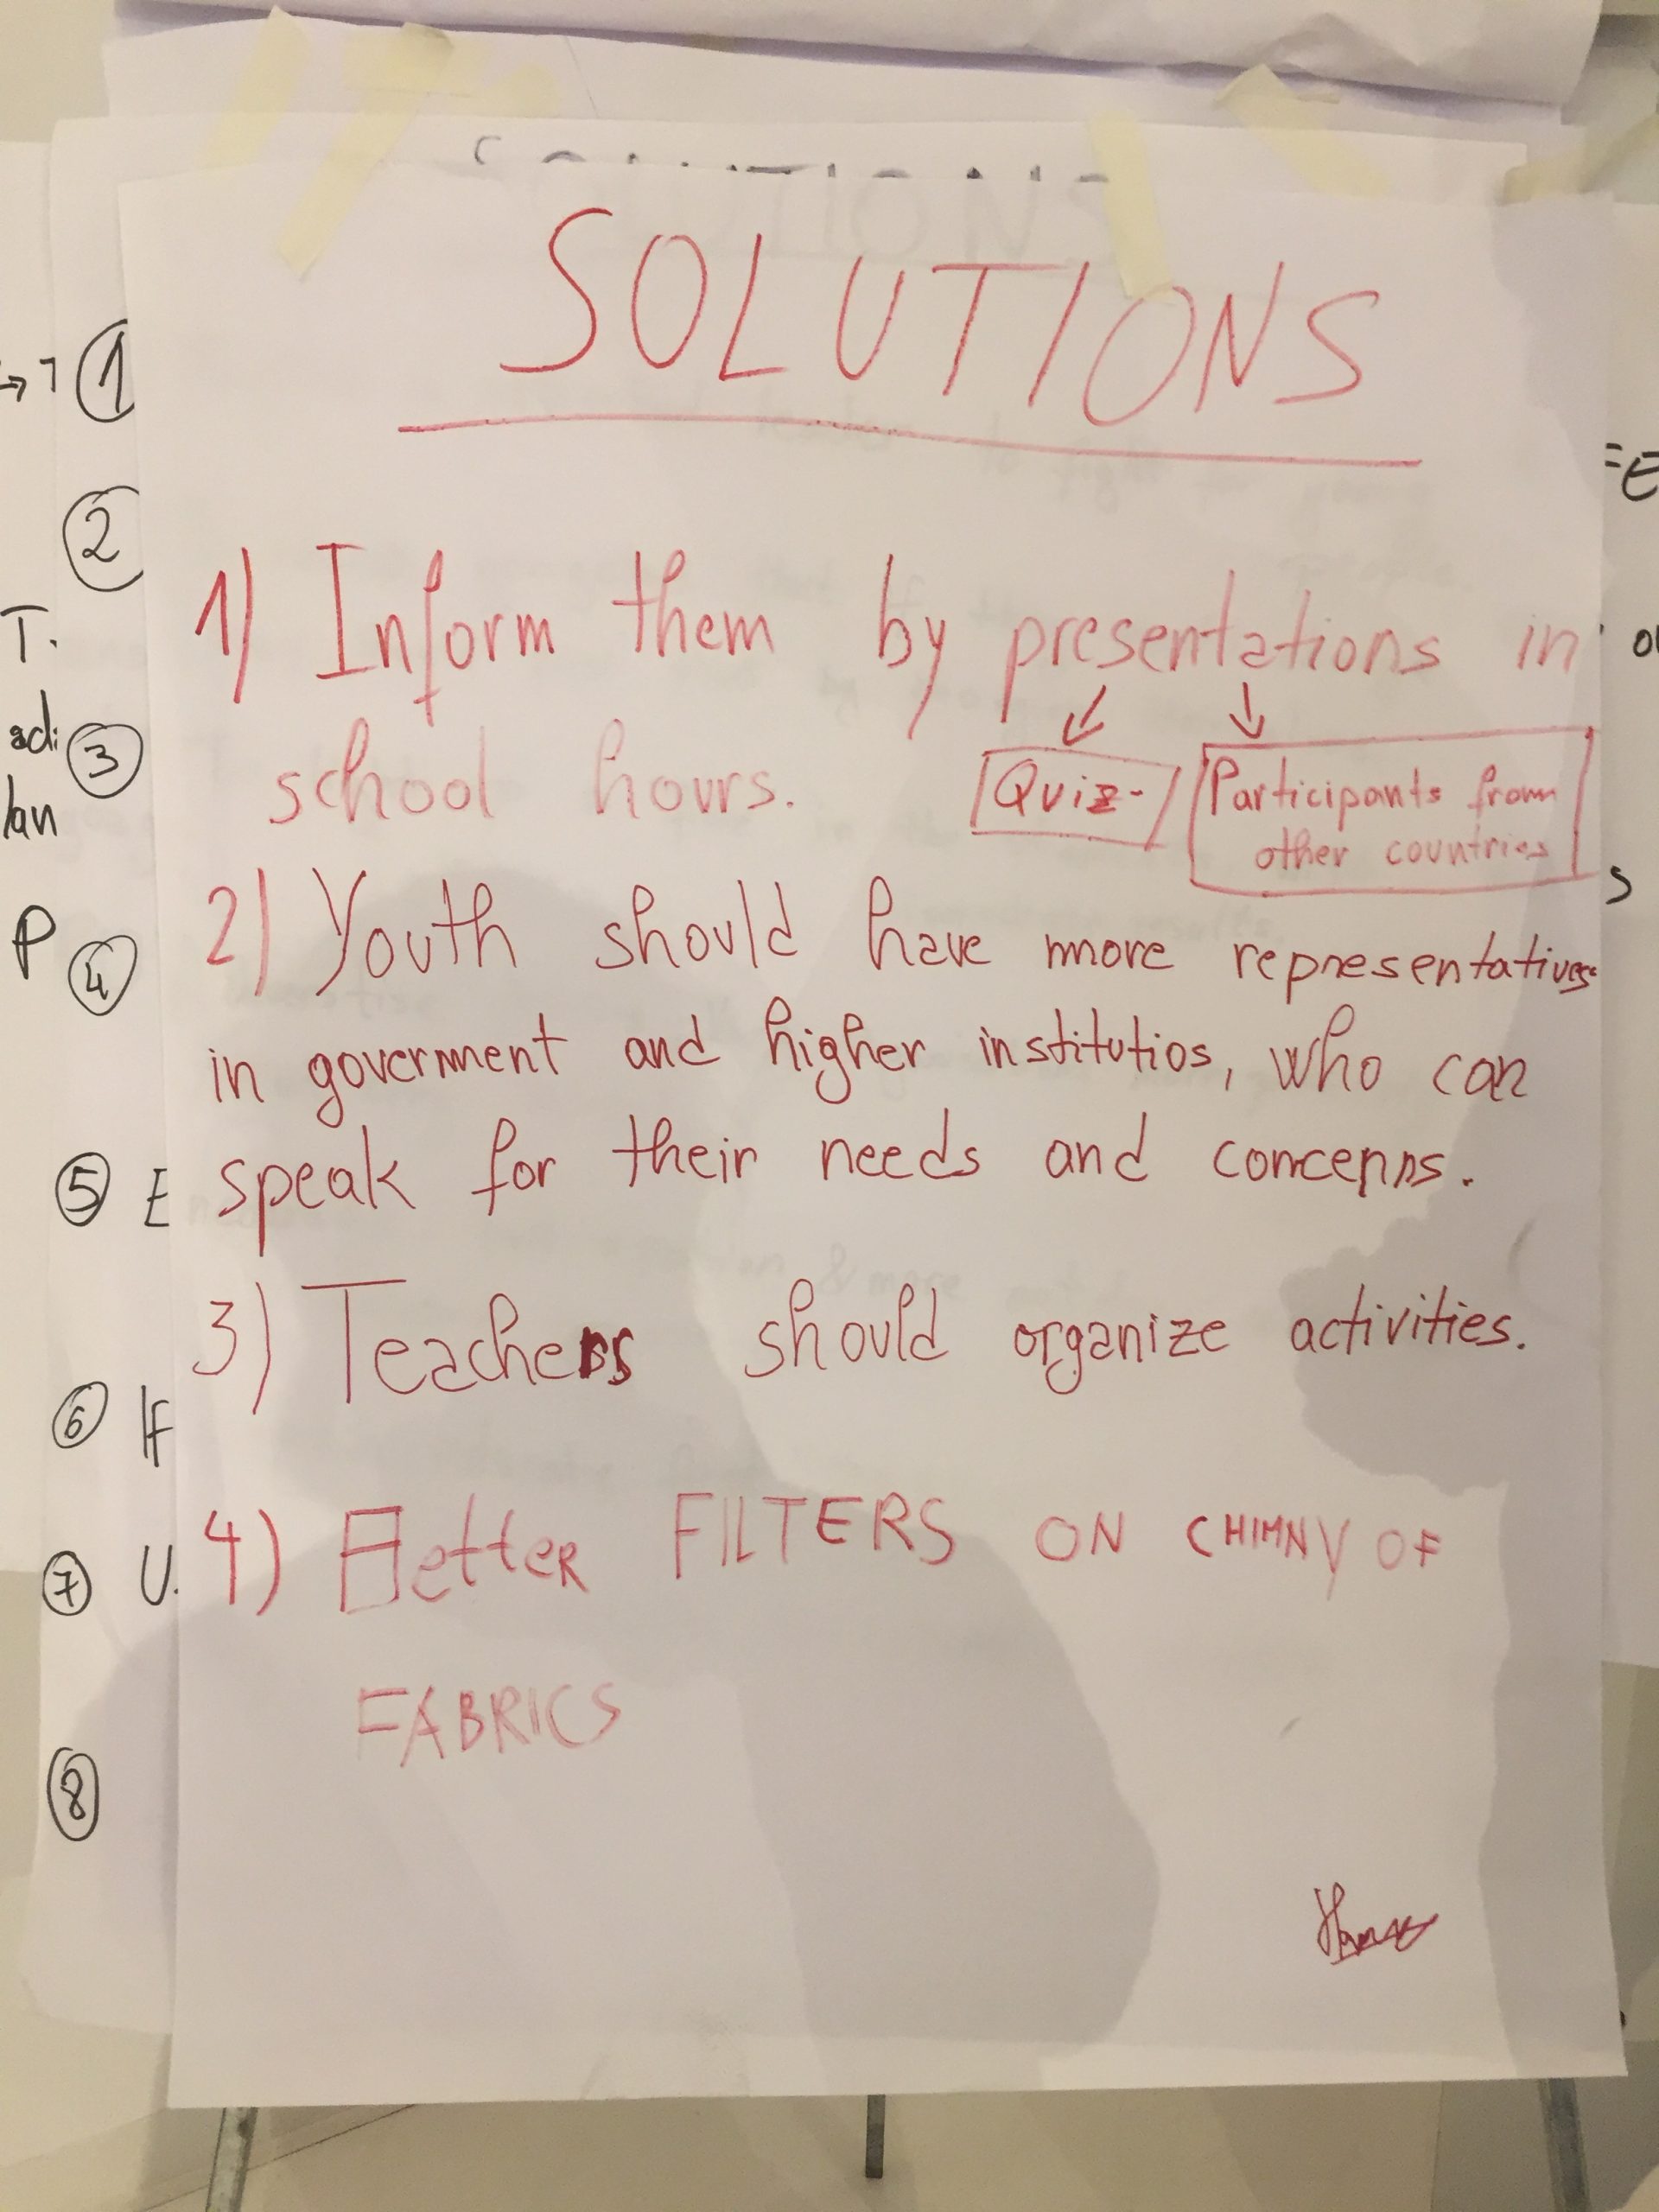 SOLUTIONS
1) Inform them by presentations in
school hours.
Quiz
Participants from
other countries
2) Youth should have more representatives
in goverment and higher institutios, who can
speak for their needs and concerns.
3) Teachers should organize activities.
4) Better FILTERS ON CHIMNY OF
FABRICS
1
2
3
4
5 E
6 If
7 U.
8